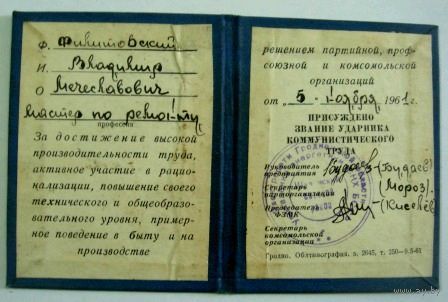 Ф. Филитовский
И. Владимир
О. Мечеславович
мастер по ремонту
профессия
За достижение высокой
производительности труда,
активное участие в рацио-
нализации, повышение своего
технического и общеобразо-
вательного уровня, пример-
ное поведение в быту и на
производстве
решением партийной, проф-
союзной и комсомольской
организаций
от „5 - ноября 1961 г.
ПРИСУЖДЕНО
ЗВАНИЕ УДАРНИКА
КОММУНИСТИЧЕСКОГО
ТРУДА
Руководитель
предприятия (Будаев)
Секретарь
парторганизации (Мороз)
Председатель
ФЗМК
Секретарь
комсомольской
организации
Гродно, Облтипография, з. 2645, т. 250—9.5-61